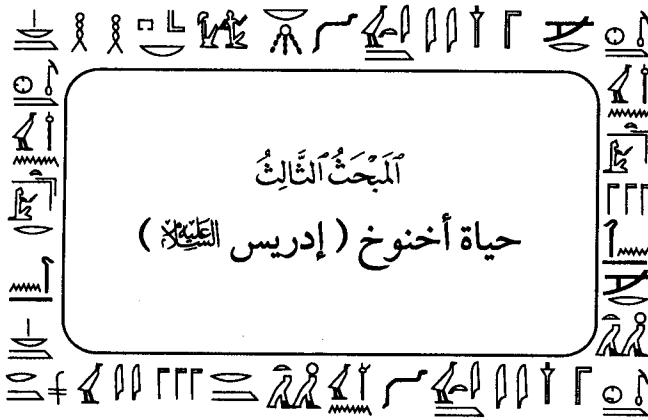 ٱلْمَبْحَثُ ٱلثَّالِثُ
حياة أخنوخ ( إدريس عَلَيْهِ السَّلَام )